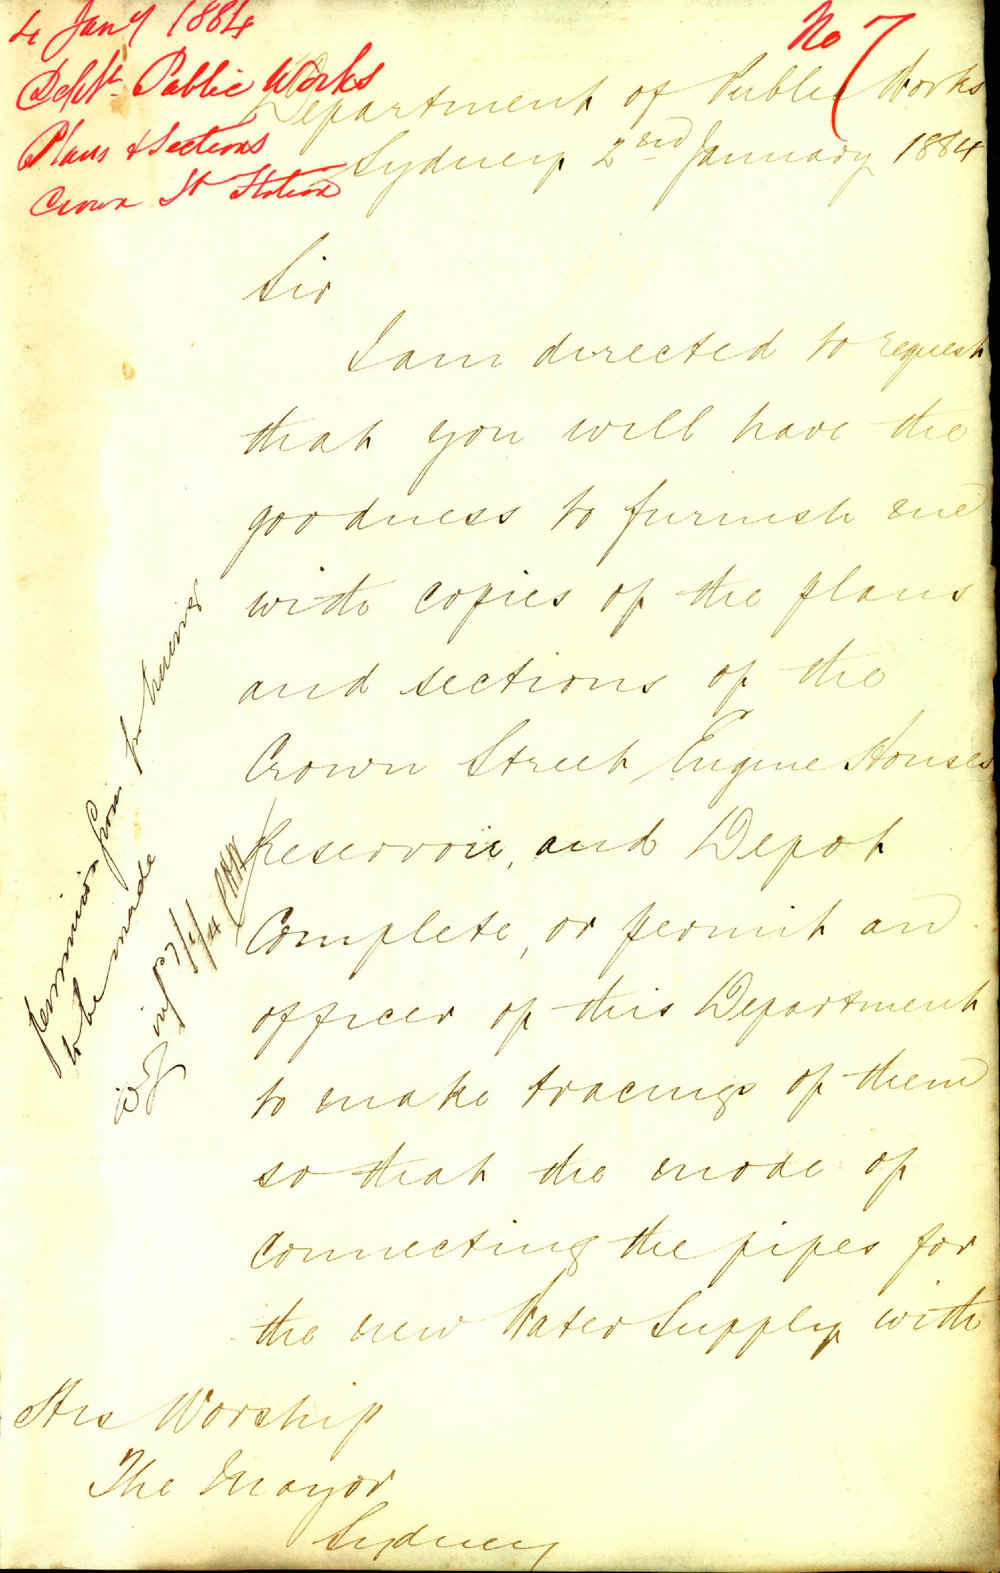 4 Jany 1884
Dept Public Works
Plans & Sections
Crown St Station
No 7
Department of Public Works
Sydney 2nd January 1884
Sir
I am directed to request
that you will have the
goodness to furnish me
with copies of the plans
and sections of the
Crown Street Engine Houses
Reservoir, and Depot
Complete, or permit an
officer of this Department
to make tracings of them
so that the mode of
connecting the pipes for
the new Water Supply with
His Worship
The Mayor
Sydney
permission from
to be made